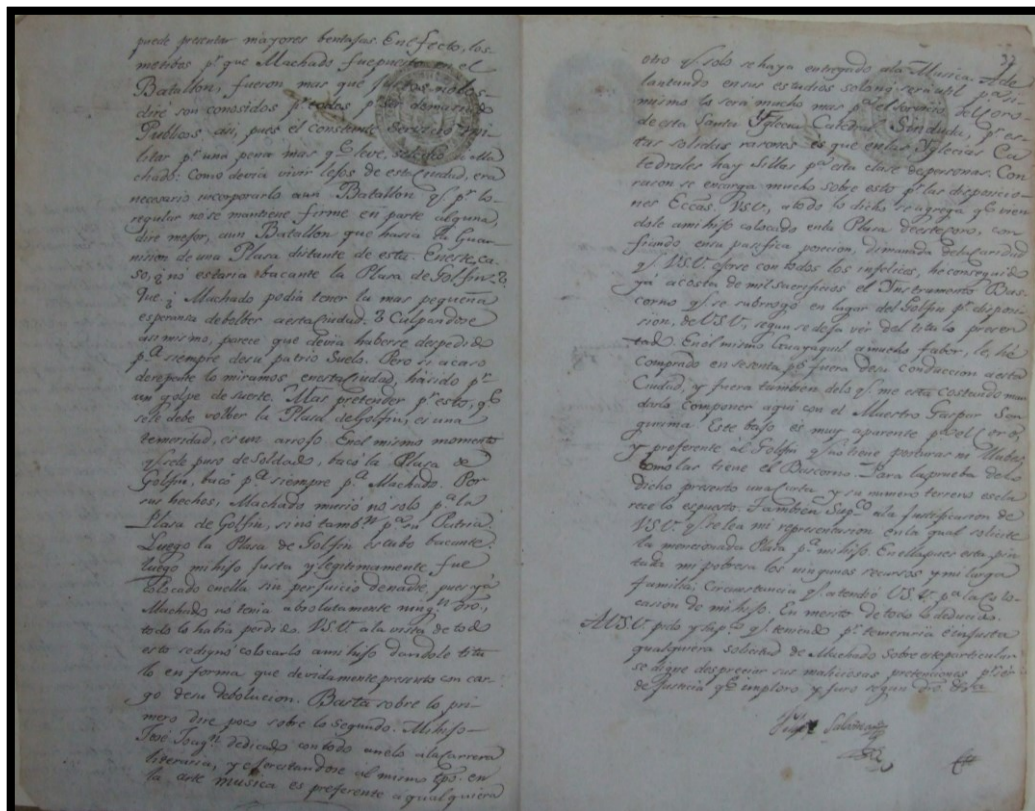 puede presentar mayores bentajas. En efecto, los
motibos pr. que Machado fue puesto en el
Batallon, fueron mas que justos: no los
dire son conosidos pr. todos pr. ser demasiado
Publicos asi, pues el constante servicio mi-
litar pr. una pena mas qe. leve, Ma-
chado. Como devia vivir lejos de esta Ciudad, era
necesario incorporarlo aun Batallon q. pr. lo
regular no se mantiene firme en parte alguna,
dire mejor, aun Batallon que hasia la Guar-
nision de una Plasa distante de esta. En este ca-
so, ¿ no estaria vacante la Plasa de Golfin?
Que ¿ Machado podia tener la mas pequeña
esperansa de bolber a esta Ciudad? Culpandose
asi mismo, parece que devia haberse despedido
pa. siempre de su patrio suelo. Pero si acaso
de repente lo miramos en esta Ciudad, há sido pr.
un golpe de suerte. Mas pretender pr. esto, qe.
se le debe volver la Plasa de Golfin, es una
temeridad, es un arrojo. En el mismo momento
q. se le puso de Soldado, bacó la Plasa de
Golfin, bacó pa. siempre pa. Machado. Por
sus hechos, Machado murió no solo pa. la
Plasa de Golfin, sino tambn. pa. su Patria.
Luego la Plasa de Golfin estubo bacante.
luego mi hijo justa y legitimamente fue
colocado en ella sin perjuicio de nadie, pues yá
Machado no tenia absolutamente ningn. dro.,
todo lo habia perdido. V.S.V. a la vista de todo
esto se dignó colocarlo a mi hijo dandole titu
lo en forma que devidamente presento con car-
go de su debolucion. Basta sobre lo pri-
mero dire poco sobre lo segundo. Mi hijo
José Joaqn. dedicado con todo anelo a la Carrera
literaria, y ejercitandose al mismo tpo. en
la arte musica es preferente a qualquiera
37
otro q. solo se haya entregado a la Musica. Ade
lantando en sus estudios no solam. será util pa. si
mismo lo será mucho mas pa. el servicio del Coro
de esta Santa Yglecia Catedral. Sin duda, pr. es-
tas solidas rasones es que en las Yglecias Ca-
tedrales hay Sillas pa. esta clase de personas. Con
rason se encarga mucho sobre esto pr. las disposicio-
nes Eccas. V.S.V., a todo lo dicho se agrega qe. vien
dole a mi hijo colocado en la Plasa de este coro, con
fiando en su pasifica posecion, dimanada de la Caridad
q. V.S.V. ejerse con todos los infelices, he conseguido
yá a costa de mil sacrificios el Ynstrumento Bus-
corno q. se subrogó en lugar del Golfin pr. disposi-
sion, de V.S.V., segun se deja ver del titulo presen-
tado. En el mismo Guayaquil a mucho fabor, le, hé
comprado en sesenta ps. fuera de su conduccion a esta
Ciudad, y fuera tambien de lo q. me está costando man
darlo componer aqui con el Maestro Gaspar San
gurima. Este bajo es muy aparente pa. el Coro,
y preferente al Golfin q. no tiene posturas ni llabes,
como las tiene el Buscorno. Para la prueba de lo
dicho presento una Carta y su numero terrero escla
rece lo espuesto. Tambien supco. a la justificasion de
V.S.V. q. se lea mi representasion en la qual solicité
la mencionada Plasa pa. mi hijo. En ella pues esta pin
tada mi pobresa los ningunos recursos y mi larga
familia. Circunstancia q. atendió V.S.V. pa. la colo-
casion de mi hijo. En merito de todo lo deducido.
A V.S.V. pido y supco. q. teniendo pr. temeraria e injusta
qualquiera solicitud de Machado sobre este particular
se digne despreciar sus maliciosas pretenciones pr. ser
de justicia qe. imploro y juro segun dro. &a.